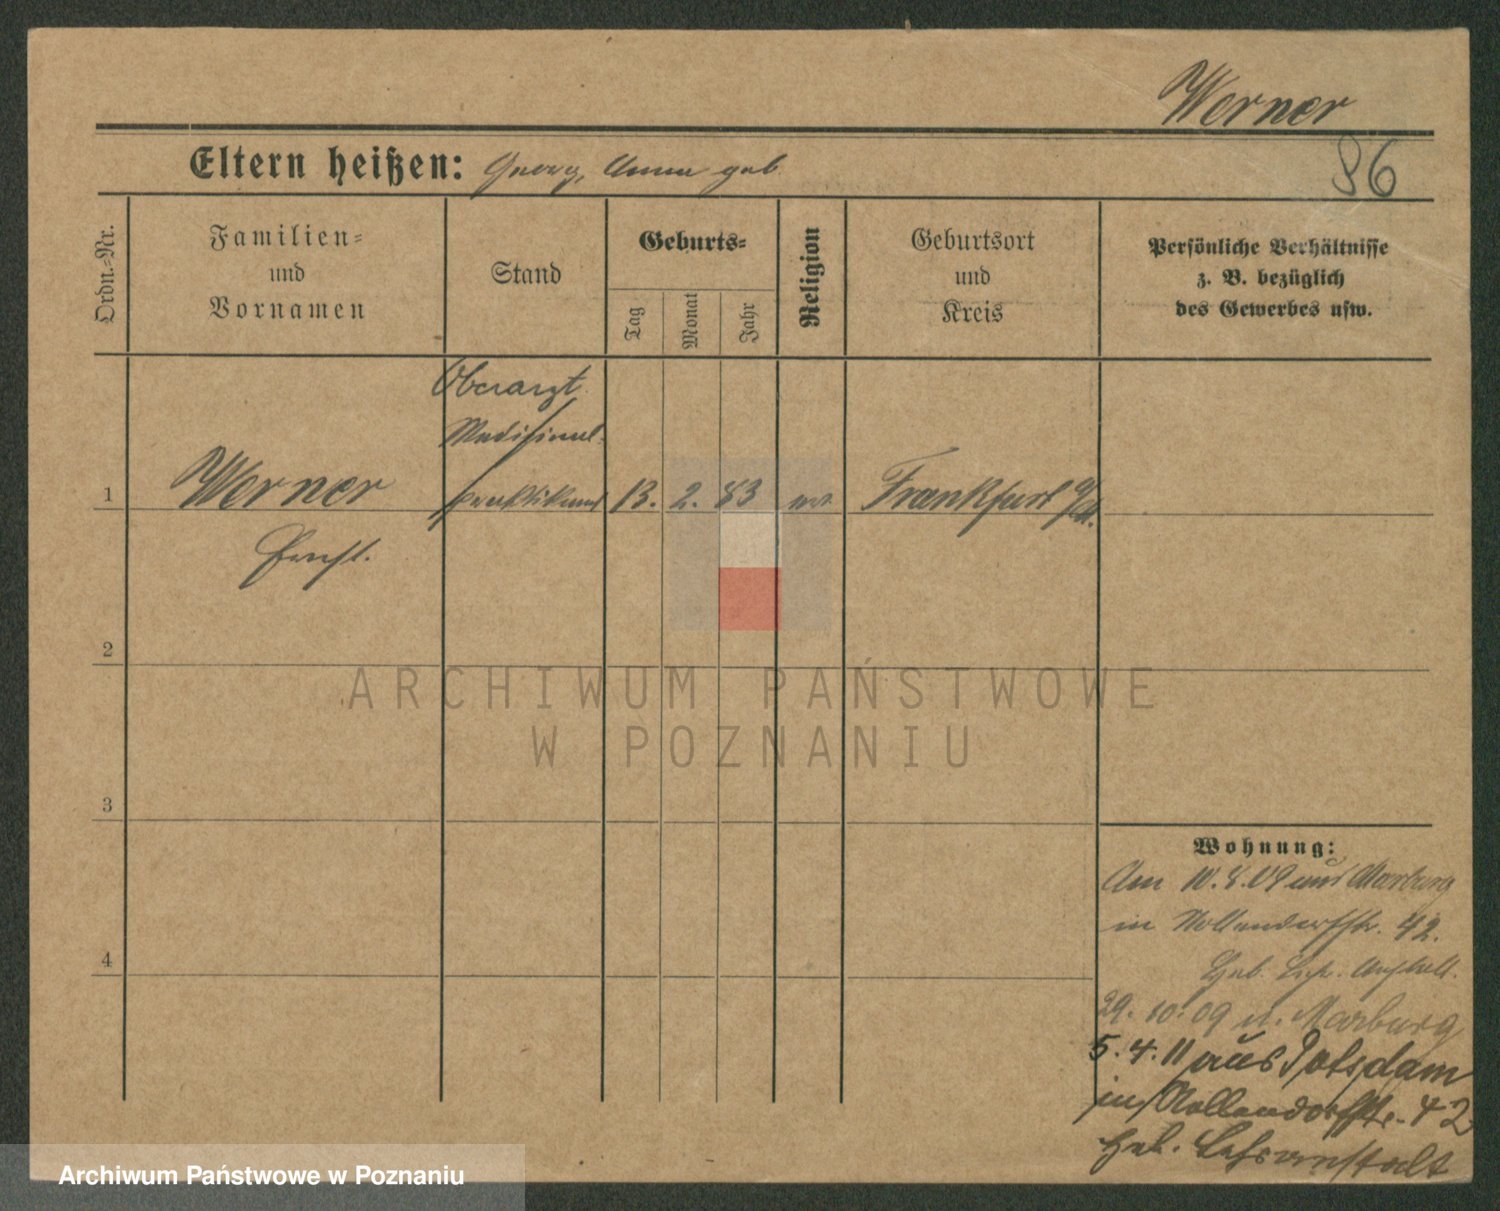 Werner
86
Eltern heißen: Georg, Anna geb
Ordn.=Nr.
Familien=
und
Vornamen
Stand
Geburts=
Tag
Monat
Jahr
Religion
Geburtsort
und
Kreis
Persönliche Verhältnisse
z. B. bezüglich
des Gewerbes usw.
Oberarzt
Medizinal-
praktikant
1
Werner
13. 2. 83
Frankfurt
Ernst.
2
ARCHIWUM PAŃSTWOWE
W POZNANIU
3
Wohnung:
Am 10.8.09 aus Marburg
in Nollendorfstr. 42.
4
Heb. Anstalt.
29.10.09 n. Marburg
5.4.11 aus Potsdam
in Nollendorfstr. 42
Heb. Lehranstalt
Archiwum Państwowe w Poznaniu